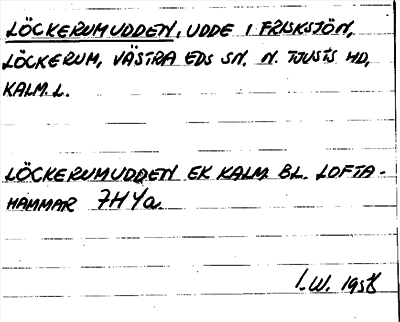 LÖCKERUMUDDEN, UDDE I FRISKSJÖN,
LÖCKERUM, VÄSTRA EDS SN. N. TJUSTS HD,
KALM. L.
LÖCKERUMUDDEN EK KALM. BL. LOFTA-
HAMMAR 7H4a.
I.W. 1958